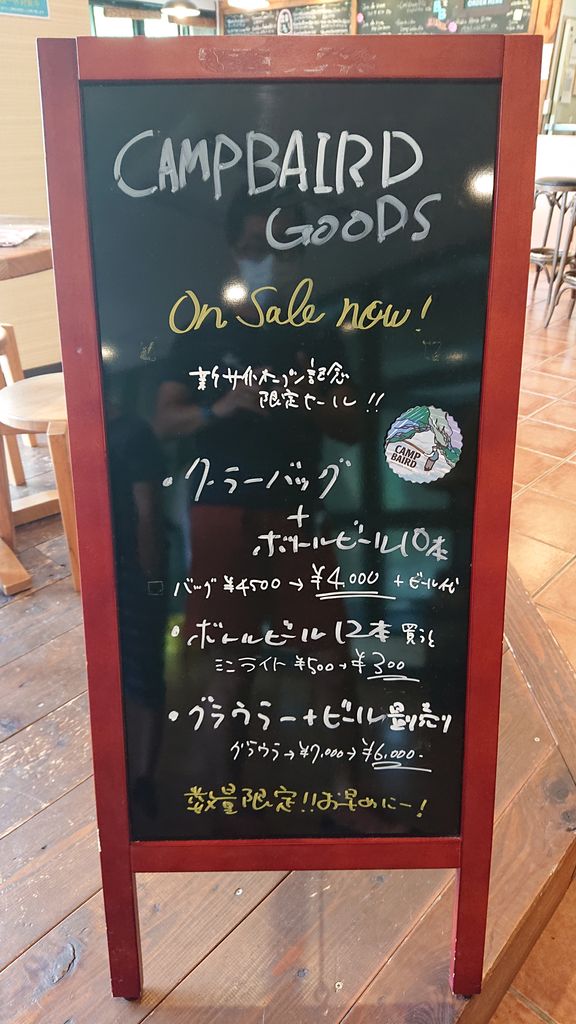 CAMPBAIRD
GOODS
On Sale now!
新サイトオープン記念
限定セール!!
CAMP
BAIRD
・クーラーバッグ
+
ボトルビール10本
バッグ ¥4500→¥4,000 +ビール代
・ボトルビール12本 買うと
ミニライト ¥500→¥300
・グラウラー+ビール量り売り
グラウラー→¥7,000→¥6,000-
数量限定!!お早めにー!